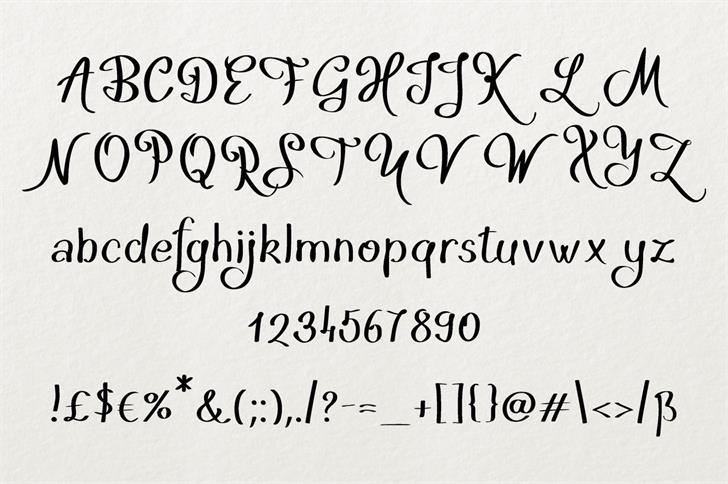 ABCDEFGHIJK L M
NOPQRSTUV W XYZ
abcdefghijklmnopqrstuvwx yz
1234567890
!£$€%*&(;:),./?-=_+[]{}@#\<>/β